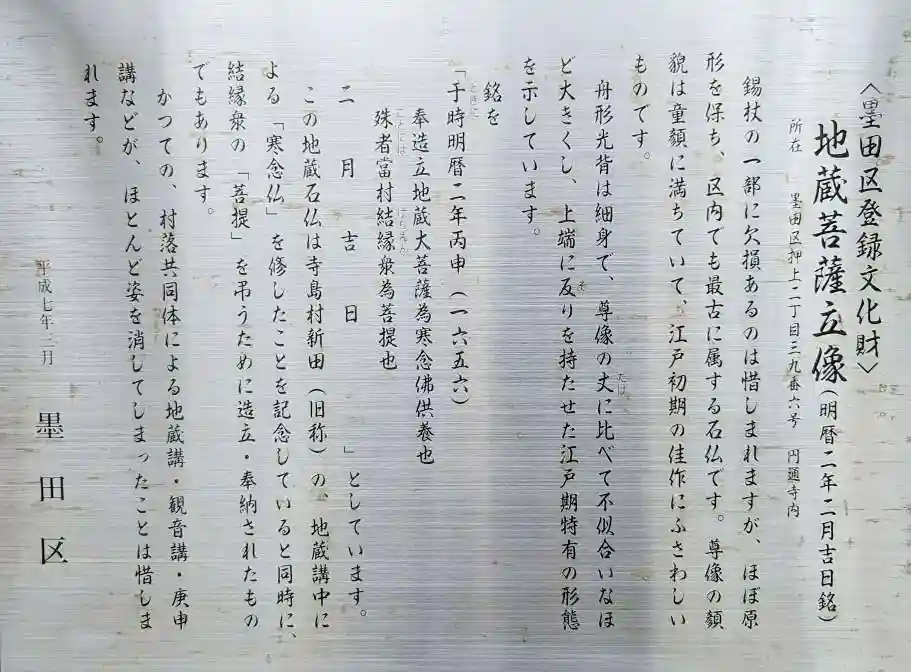 〈墨田区登録文化財〉
地蔵菩薩立像(明暦二年二月吉日銘)
所在 墨田区押上二丁目三九番六号 円通寺内
錫杖の一部に欠損あるのは惜しまれますが、ほぼ原
形を保ち、区内でも最古に属する石仏です。尊像の顔
貌は童顔に満ちていて、江戸初期の佳作にふさわしい
ものです。
舟形光背は細身で、尊像の丈に比べて不似合いなほ
たけ
ど大きくし、上端に反りを持たせた江戸期特有の形態
そ
を示しています。
銘を
「于時明暦二年丙申(一六五六)
ときに
奉造立地蔵大菩薩為寒念佛供養也
殊者當村結縁衆為菩提也
ことには けちえん
二月吉日 」としています。
この地蔵石仏は寺島村新田(旧称)の、地蔵講中に
よる「寒念仏」を修したことを記念していると同時に、
結縁衆の「菩提」を弔うために造立・奉納されたもの
でもあります。
かつての、村落共同体による地蔵講・観音講・庚申
講などが、ほとんど姿を消してしまったことは惜しま
れます。
平成七年二月
墨田区